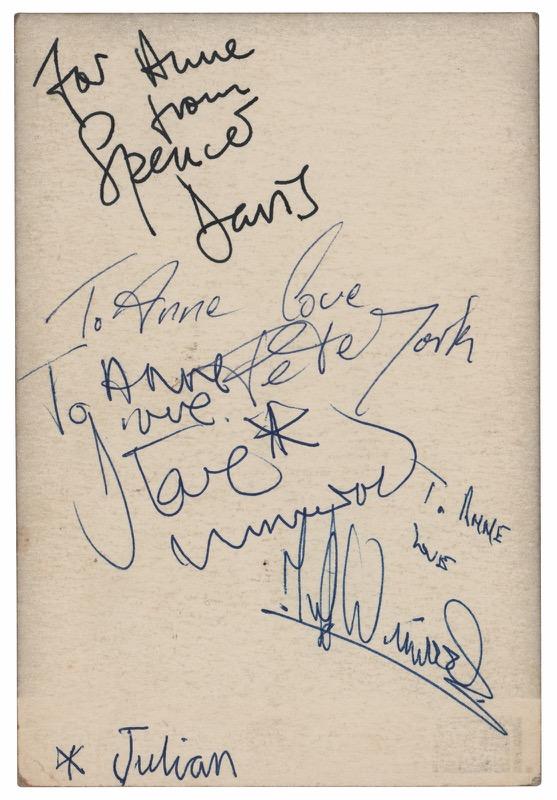 For Anne
from
Spencer
Davis
To Anne love
Pete York
To Anne
love.
Steve *
Winwood
To ANNE
LOVE
Muff Winwood
* Julian